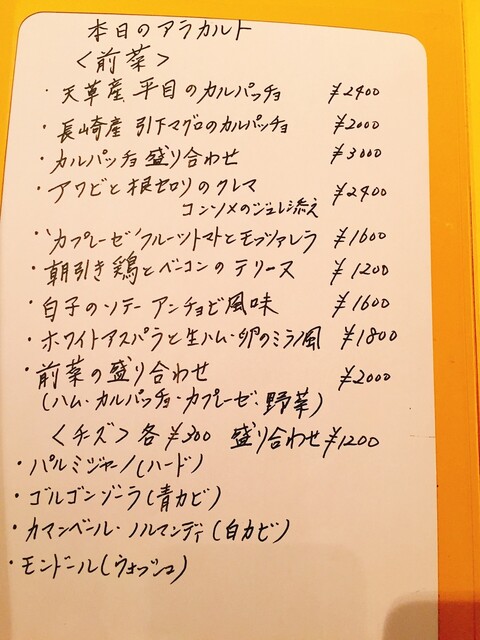 本日のアラカルト
<前菜>
・天草産 平目のカルパッチョ ¥2400
・長崎産 引下マグロのカルパッチョ ¥2000
・カルパッチョ盛り合わせ ¥3000
・アワビと根セロリのクレマ
コンソメのジュレ添え ¥2400
・"カプレーゼ"フルーツトマトとモッツァレラ ¥1600
・朝引き鶏とベーコンのテリーヌ ¥1200
・白子のソテー アンチョビ風味 ¥1600
・ホワイトアスパラと生ハム・卵のミラノ風 ¥1800
・前菜の盛り合わせ ¥2000
(ハム・カルパッチョ・カプレーゼ・野菜)
<チーズ> 各¥300 盛り合わせ¥1200
・パルミジャーノ(ハード)
・ゴルゴンゾーラ(青カビ)
・カマンベール・ノルマンディ(白カビ)
・モンドール(ウォッシュ)